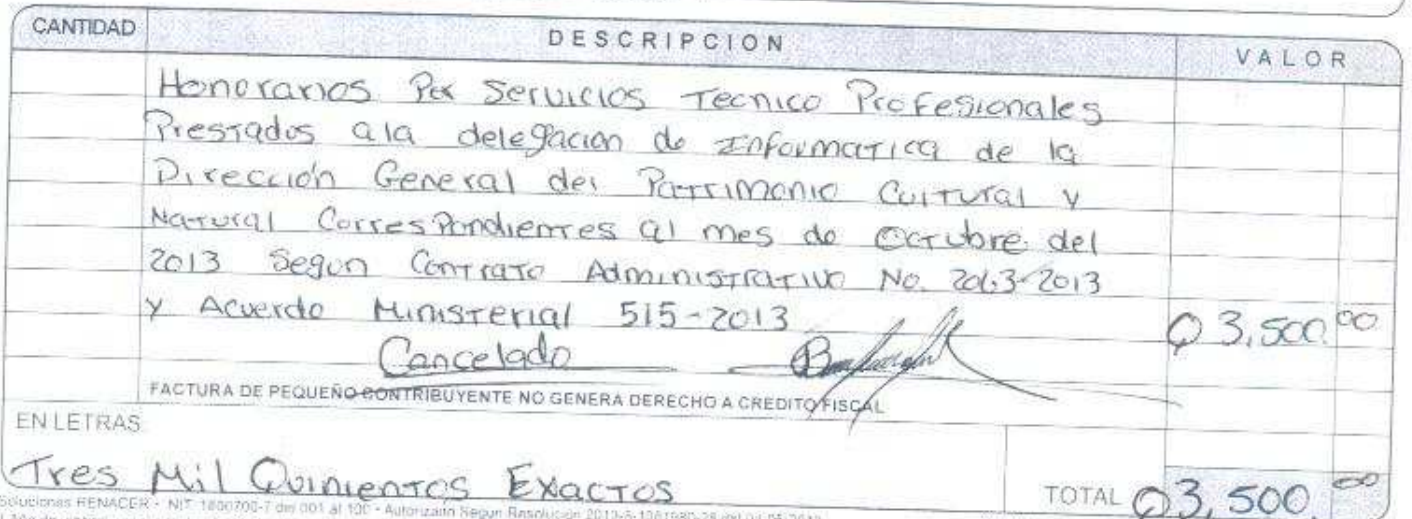 CANTIDAD DESCRIPCION VALOR
Honorarios Por Servicios Tecnico Profesionales
Prestados a la delegación de Informatica de la
Dirección General del Patrimonio Cultural y
Natural Correspondientes al mes de Octubre del
2013 Segun Contrato Administrativo No. 2063-2013
y Acuerdo Ministerial 515-2013 Q 3,500.00
Cancelado
FACTURA DE PEQUEÑO CONTRIBUYENTE NO GENERA DERECHO A CREDITO FISCAL
EN LETRAS
Tres Mil Quinientos Exactos TOTAL Q3,500.00
Soluciones RENACER - NIT: 1800700-7 del 001 al 100 - Autorizado Segun Resolución